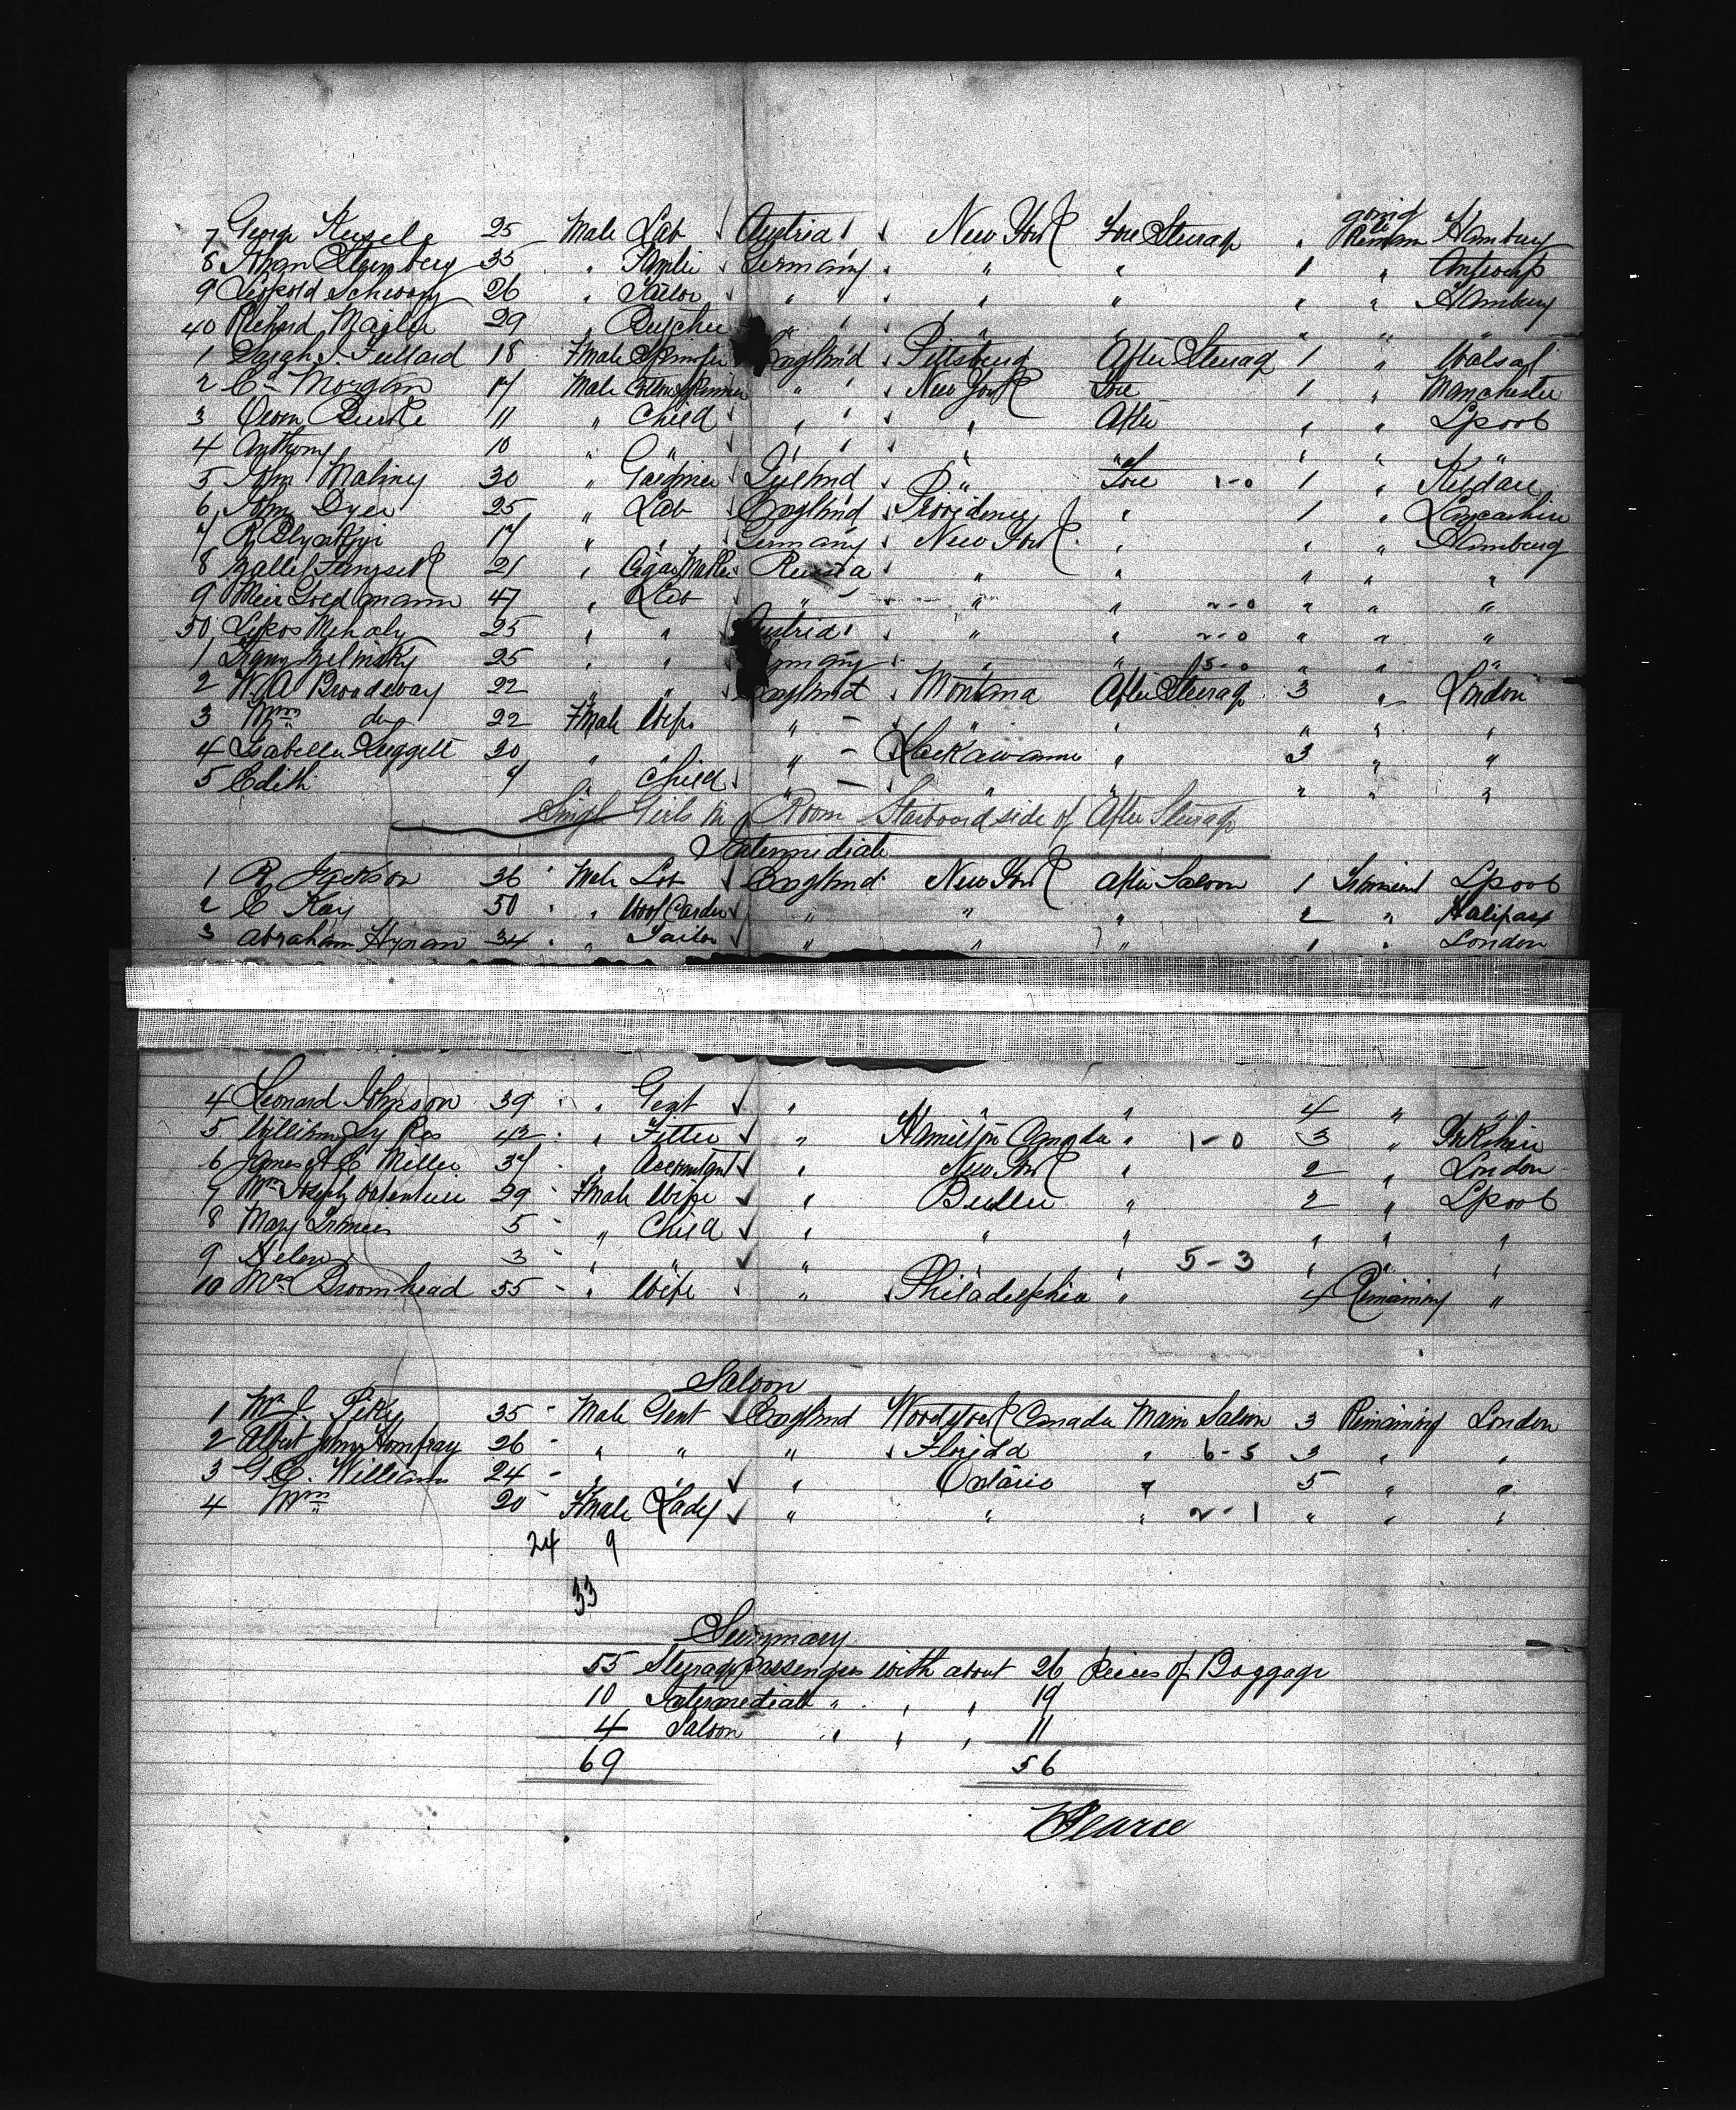 7 George 25 Male Lab Austria New York Fore Steerage " going to Remain Hamburg
8 Steinberg 35 " Germany " " 1 " Antwerp
9 Leopold Schwarz 26 " Tailor " " " " " " Hamburg
40 Richard 29 " Butcher " " " " " "
1 Sarah J. Fullard 18 Fmale Spinster England Pittsburg After Steerage 1 " Walsal
2 Ed Morgan 17 Male Cotton Spinner " New York Fore 1 " Manchester
3 Owen Burke 11 " Child " " After " " Lpool
4 Anthony " 10 " " " " " " " "
5 John Maliney 30 " Gardiner Ireland " Fore 1-0 1 " Kildare
6 John Dyer 25 " Lab England Providence " 1 " Lancashire
7 R 17 " " Germany New York " " " Hamburg
8 21 " Cigar Maker Russia " " " " "
9 Meir Goldmann 47 " Lab " " " 2-0 " " "
50 Lukos Mehaly 25 " " Austria " " 2-0 " " "
1 25 " " Germany " " 15-0 " " "
2 W. A Broadway 22 " " England Montana After Steerage 3 " London
3 Mrs do 22 Fmale Wife " " " " " "
4 Isabella Leggett 20 " " " Lackawanna " 3 " "
5 Edith " Child " " " " " "
Single Girls in Room Starboard side of After Steerage
Intermediate
1 R Jackson 36 Male Lab England New York After Saloon 1 Lpool
2 E Kay 50 " Wool Carder " " " 2 " Halifax
3 Abraham Hyman 34 " Tailor " " " 1 " London
4 Leonard Johnson 39 " Gent " " " 4 " "
5 William Sykes 42 " Fitter " Hamilton Canada " 1-0 3 " Yrkshire
6 James A C Miller 37 " Accountant " New York " 2 " London
7 Mrs Joseph Valentine 29 Fmale Wife " Butler " 2 " Lpool
8 Mary Frances 5 " Child " " " " " "
9 Helen " 3 " " " " " 5-3 " " "
10 Mrs Broomhead 55 " Wife " Philadelphia " 4 Remaining "
Saloon
1 Mr J. 35 Male Gent England Woodstock Canada Main Saloon 3 Remaining London
2 Albert John Homfray 26 " " " Florida " 6-5 3 " "
3 G. E. Williams 24 " " " Ontario " 5 " "
4 Mrs " 20 Fmale Lady " " " 2-1 " " "
24 9
33
Summary
55 Steerage Passengers with about 26 Peices of Baggage
10 Intermediate " " " 19
4 Saloon " " " 11
69 56
Pearce